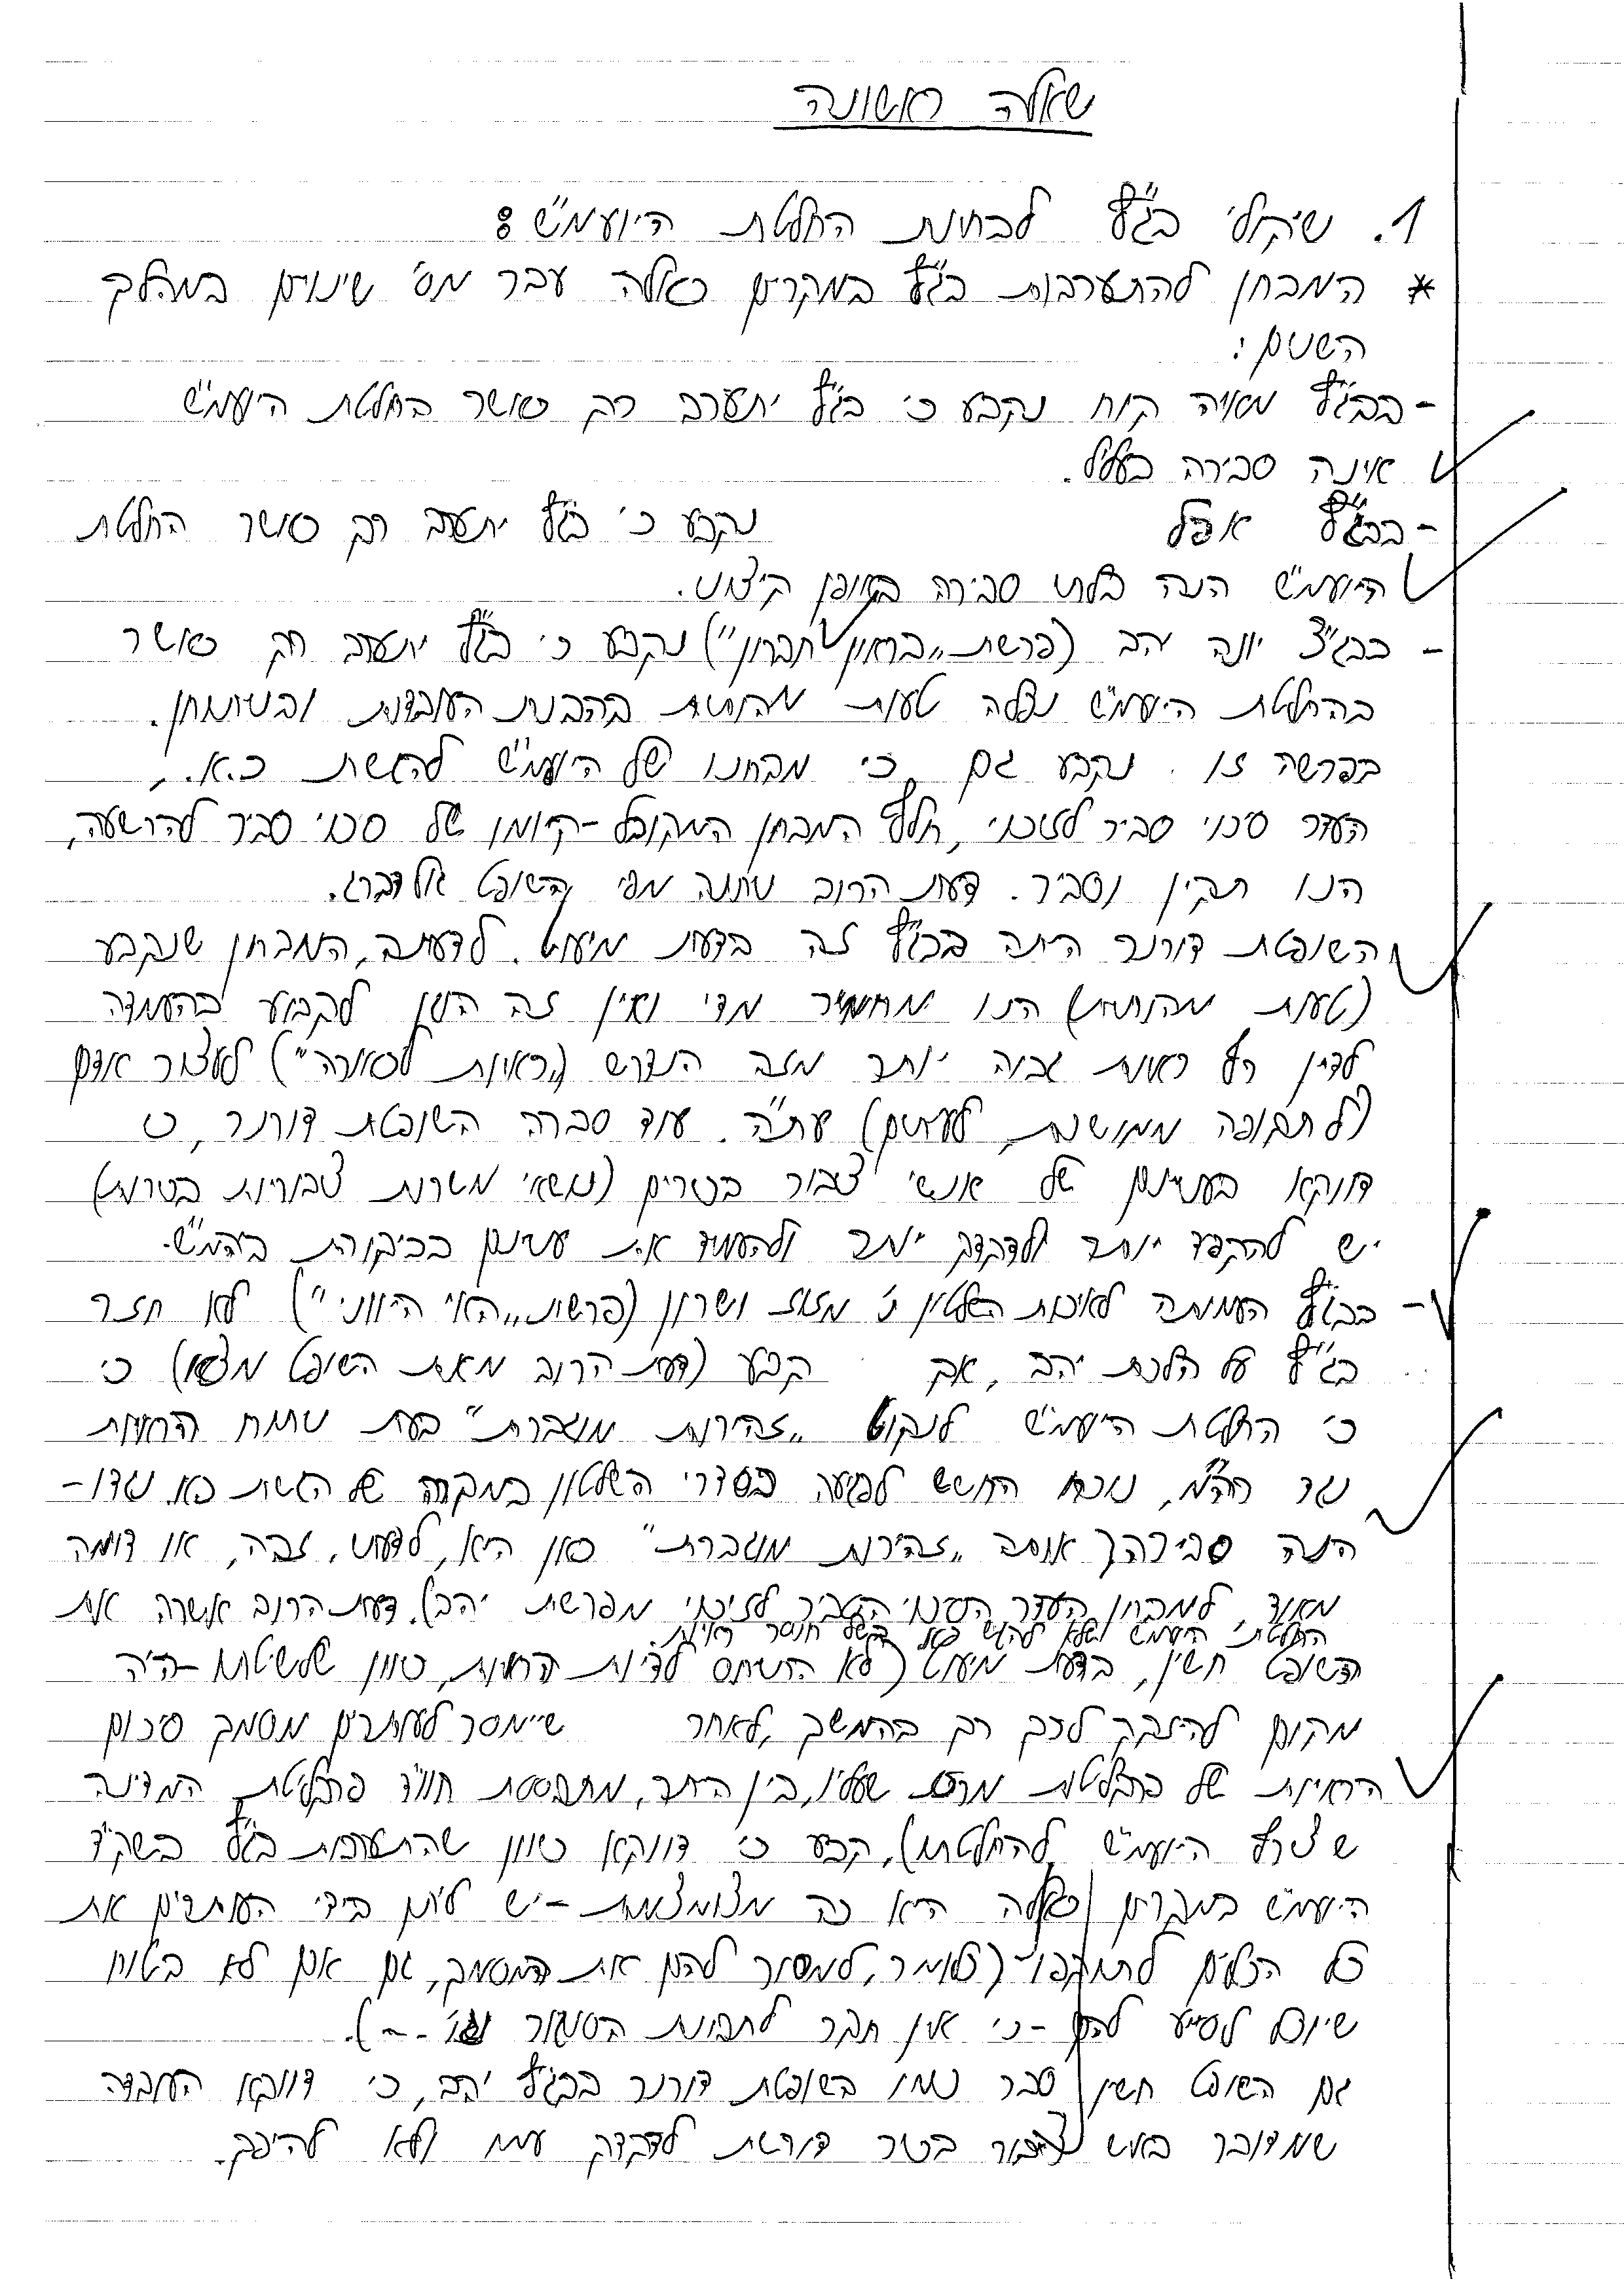 שאלה ראשונה
1. שיקולי בג"ץ לבחינת החלטת היועמ"ש:
* המבחן להתערבות בג"ץ במקרים כאלה עבר מס' שינויים במהלך
השנים:
- בבג"ץ מאיה קוח נקבע כי בג"ץ יתערב רק כאשר החלטת היועמ"ש
אינה סבירה בעליל.
- בבג"ץ אפל נקבע כי בג"ץ יתערב רק כאשר החלטת
היועמ"ש הנה בלתי סבירה באופן קיצוני.
- בבג"צ יונה יהב (פרשת "בראון חברון") נקבע כי בג"ץ יתערב רק כאשר
בהחלטת היועמ"ש נפלה טעות מהותית בהבנת העובדות ובניתוחן.
בפרשה זו נקבע גם כי מבחנו של היועמ"ש להגשת כ.א.,
העדר סיכוי סביר לזיכוי, חלף המבחן המקובל - קיומו של סיכוי סביר להרשעה,
הנו תקין וסביר. דעת הרוב ניתנה מפי השופט גולדברג.
השופטת דורנר היתה בבג"ץ זה בדעת מיעוט. לדעתה, המבחן שנקבע
(טעות מהותית) הנו מחמיר מדי ואין זה הוגן לקבוע בהעמדה
לדין רף ראיות גבוה יותר מזה הנדרש ("ראיות לכאורה") לעצור אדם
(לתקופה ממושכת, לעיתים) עת"ה. עוד סברה השופטת דורנר, כי
דווקא בעניינם של אנשי ציבור בכירים (נושאי משרות ציבוריות בכירות)
יש להקפיד יותר ולדקדק יותר ולהעמיד את עניינם בביקורת ביהמ"ש.
- בבג"ץ העמותה לאיכות השלטון נ' מזוז ושרון (פרשת "האי היווני") לא חזר
בג"ץ על הלכת יהב, אך קבע (דעת הרוב מאת השופט מצא) כי
כי החלטת היועמ"ש לנקוט "זהירות מוגברת" בעת ניתוח הראיות
נגד רה"מ, נוכח החשש לפגיעה בסדרי השלטון במקרה של הגשת כ.א. נגדו -
הנה סבירה (אותה "זהירות מוגברת" כאן היא, לדעתי, זהה, או דומה
מאוד, למבחן העדר הסיכוי הסביר לזיכוי מפרשת יהב). דעת הרוב אשרה את
החלטת היועמ"ש שלא להגיש כ.א. בשל חוסר ראיות.
השופט חשין, בדעת מיעוט (לא התייחס לדיות הראיות, כיוון שלשיטתו - היה
מקום להיזקק לכך רק בהמשך, לאחר שיימסר לעותרים מסמך סיכום
הראיות של פרקליטות מחוז שעליו, בין היתר, מתבססת חוו"ד פרקליטת המדינה
שצירף היועמ"ש להחלטתו), קבע כי דווקא כיוון שהתערבות בג"ץ בשק"ד
היועמ"ש במקרים כאלה היא כה מצומצמת - יש ליתן בידי העותרים את
כל הכלים לתוקפו (כלומר, למסור להם את המסמך, גם אם לא בטוח
שיוכל לסייע להם - כי אין חקר לתבונת הסניגור וגו' --).
גם השופט חשין סבר כמו השופטת דורנר בבג"ץ יהב, כי דווקא העובדה
שמדובר באיש ציבור בכיר דורשת לדקדק עמו ולא להיפך.